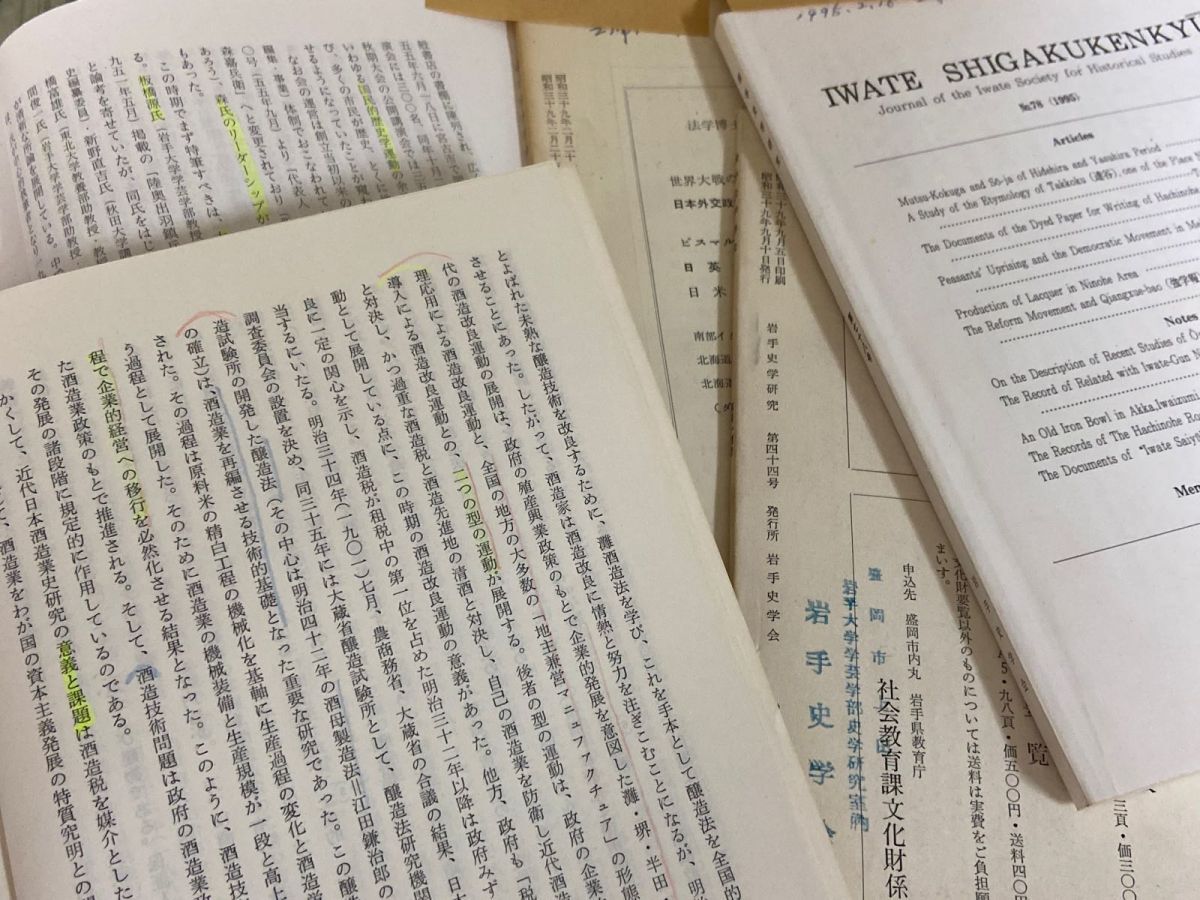 経書店の書棚に陳列され、広
五五年六月一八日に名古屋市で
演会には三〇〇名、同年十月二
秋期大会の公開講演会では三五
いわゆる国民的歴史学運動の余
び、多くの市民が歴史、とくに
せるようになっていたことが窺
なお会の運営は創立当初以来の
編集・事業）体制でおこなわれて
〇号（五五年九月）より「代表人
森嘉兵衛」へと変更されており
あろう、森氏のリーダーシップが
もあった。
この時期でまず特筆すべきは、
る。板橋源氏（岩手大学学芸学部教授
九五一年五月）掲載の「陸奥出羽鎮兵
と論考を寄せていたが、同氏をはじ
史編纂委員）新野直吉氏（秋田大学講
橋富雄氏（東北大学教養部助教授・教
間俊一氏（岩手大学学芸学部助教授
とよばれた未熟な醸造技術を改良するために、灘酒造法を学び、これを手本として醸造法を全国的
させることにあった。したがって、酒造家は酒造改良に情熱と努力を注ぎこむことになるが、明
代の酒造改良運動の展開は、政府の殖産興業政策のもとで企業的発展を意図した灘・堺・半田
理応用による酒造改良運動と、全国の地方の大多数の「地主兼営マニュファクチュア」の形態
導入による酒造改良運動との、二つの型の運動が展開する。後者の型の運動は、政府の企業
と対決し、かつ過重な酒造税と酒造先進地の清酒と対決し、自己の酒造業を防衛し近代酒造
動として展開している点に、この時期の酒造改良運動の意義があった。他方、政府も「税
良に一定の関心を示し、酒造税が租税中の第一位を占めた明治三十二年以降は政府みず
当するにいたる。明治三十四年（一九〇一）七月、農商務省、大蔵省の合議の結果、日本
調査委員会の設置を決め、同三十五年には大蔵省醸造試験所として、醸造法研究機関
造試験所の開発した醸造法（その中心は明治四十二年の酒母製造法＝江田鎌治郎の
の確立）は、酒造業を再編させる技術的基礎となった重要な研究であった。この醸
された。その過程は原料米の精白工程の機械化を基軸に生産過程の変化と酒造
う過程として展開した。そのために酒造業の機械装備と生産規模が一段と高上
程で企業的経営への移行を必然化させる結果となった。このように、酒造技
た酒造業政策のもとで推進される。そして、酒造技術問題は政府の酒造業政
その発展の諸段階に規定的に作用しているのである。
かくして、近代日本酒造業史研究の意義と課題は酒造税を媒介とした
酒造業をわが国の資本主義発展の特質究明との関
法学博
世界大戦の
日本外交政
ビスマル
日英
日米
南部イ
北海道
北海道
昭和三十九年九月五日印刷
昭和三十九年九月十日発行
岩手史学研究　第四十四号　発行所　岩手史学会
盛岡市上田
岩手大学学芸学部史学研究室内
岩手史学会
覧
A5・九八頁・価五〇〇円・送料四〇円
文化財要覧以外のものについては送料は実費をご負担願
まいす。
申込先　盛岡市内丸　岩手県教育庁
社会教育課文化財係
1995.2.16
IWATE SHIGAKUKENKYU
Journal of the Iwate Society for Historical Studies
№78 (1995)
Articles
Mutsu-Kokuga and Sō-ja of Hidehira and Yasuhira Period
A Study of the Etymology of Takkoku (達谷), one of the Place N
The Documents of the Dyed Paper for Writing of Hachinohe
Peasants' Uprising and the Democratic Movement in Me
Production of Lacquer in Ninohe Area
The Reform Movement and Qiangxue-bao (強学報)
Notes
On the Description of Recent Studies of Ō-
The Record of Related with Iwate-Gun
An Old Iron Bowl in Akka, Iwaizum
The Records of The Hachinohe Ro
The Documents of "Iwate Saiyo